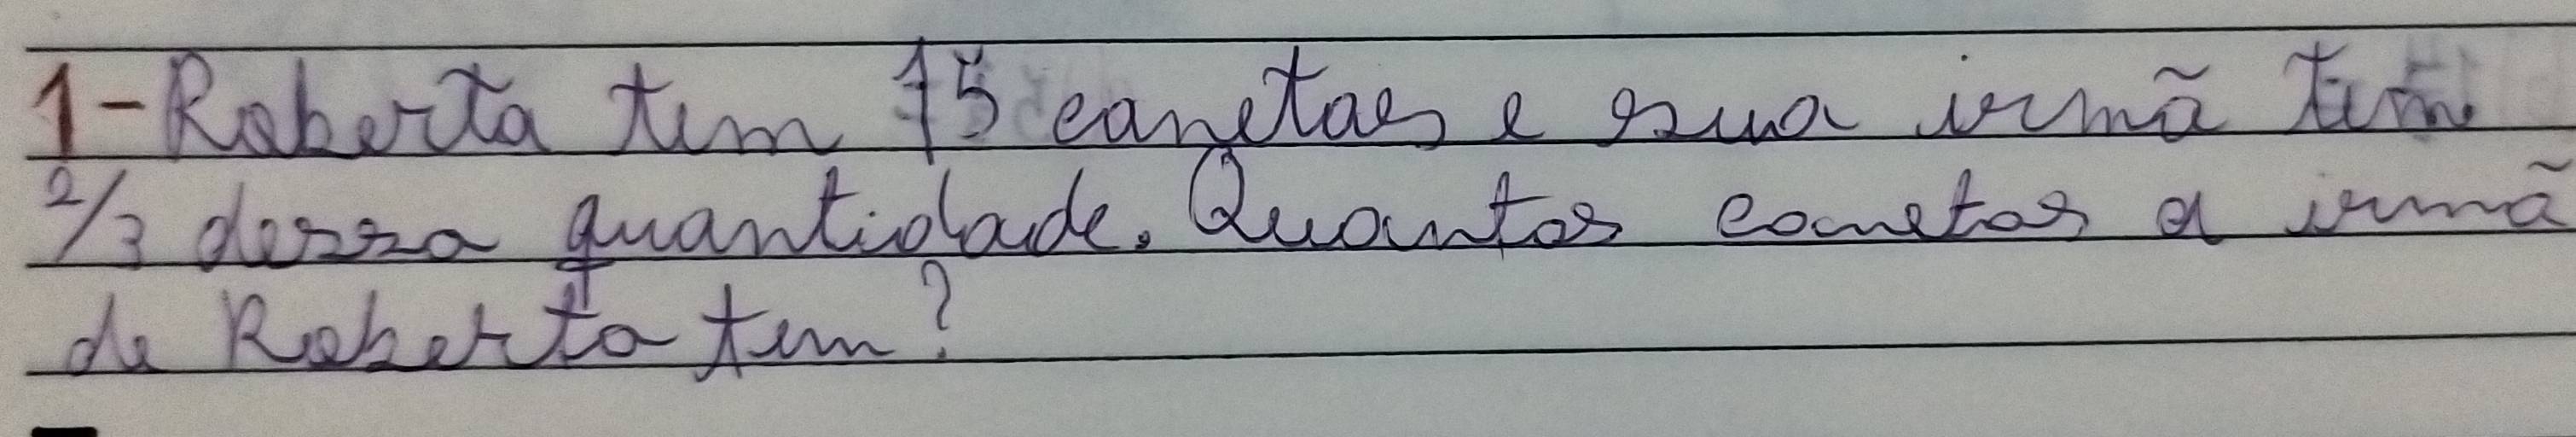 1-Roberta tem 75 canetas e sua irmã tem
2/3 dessa quantidade. Quantas canetas a irmã
de Roberta tem?